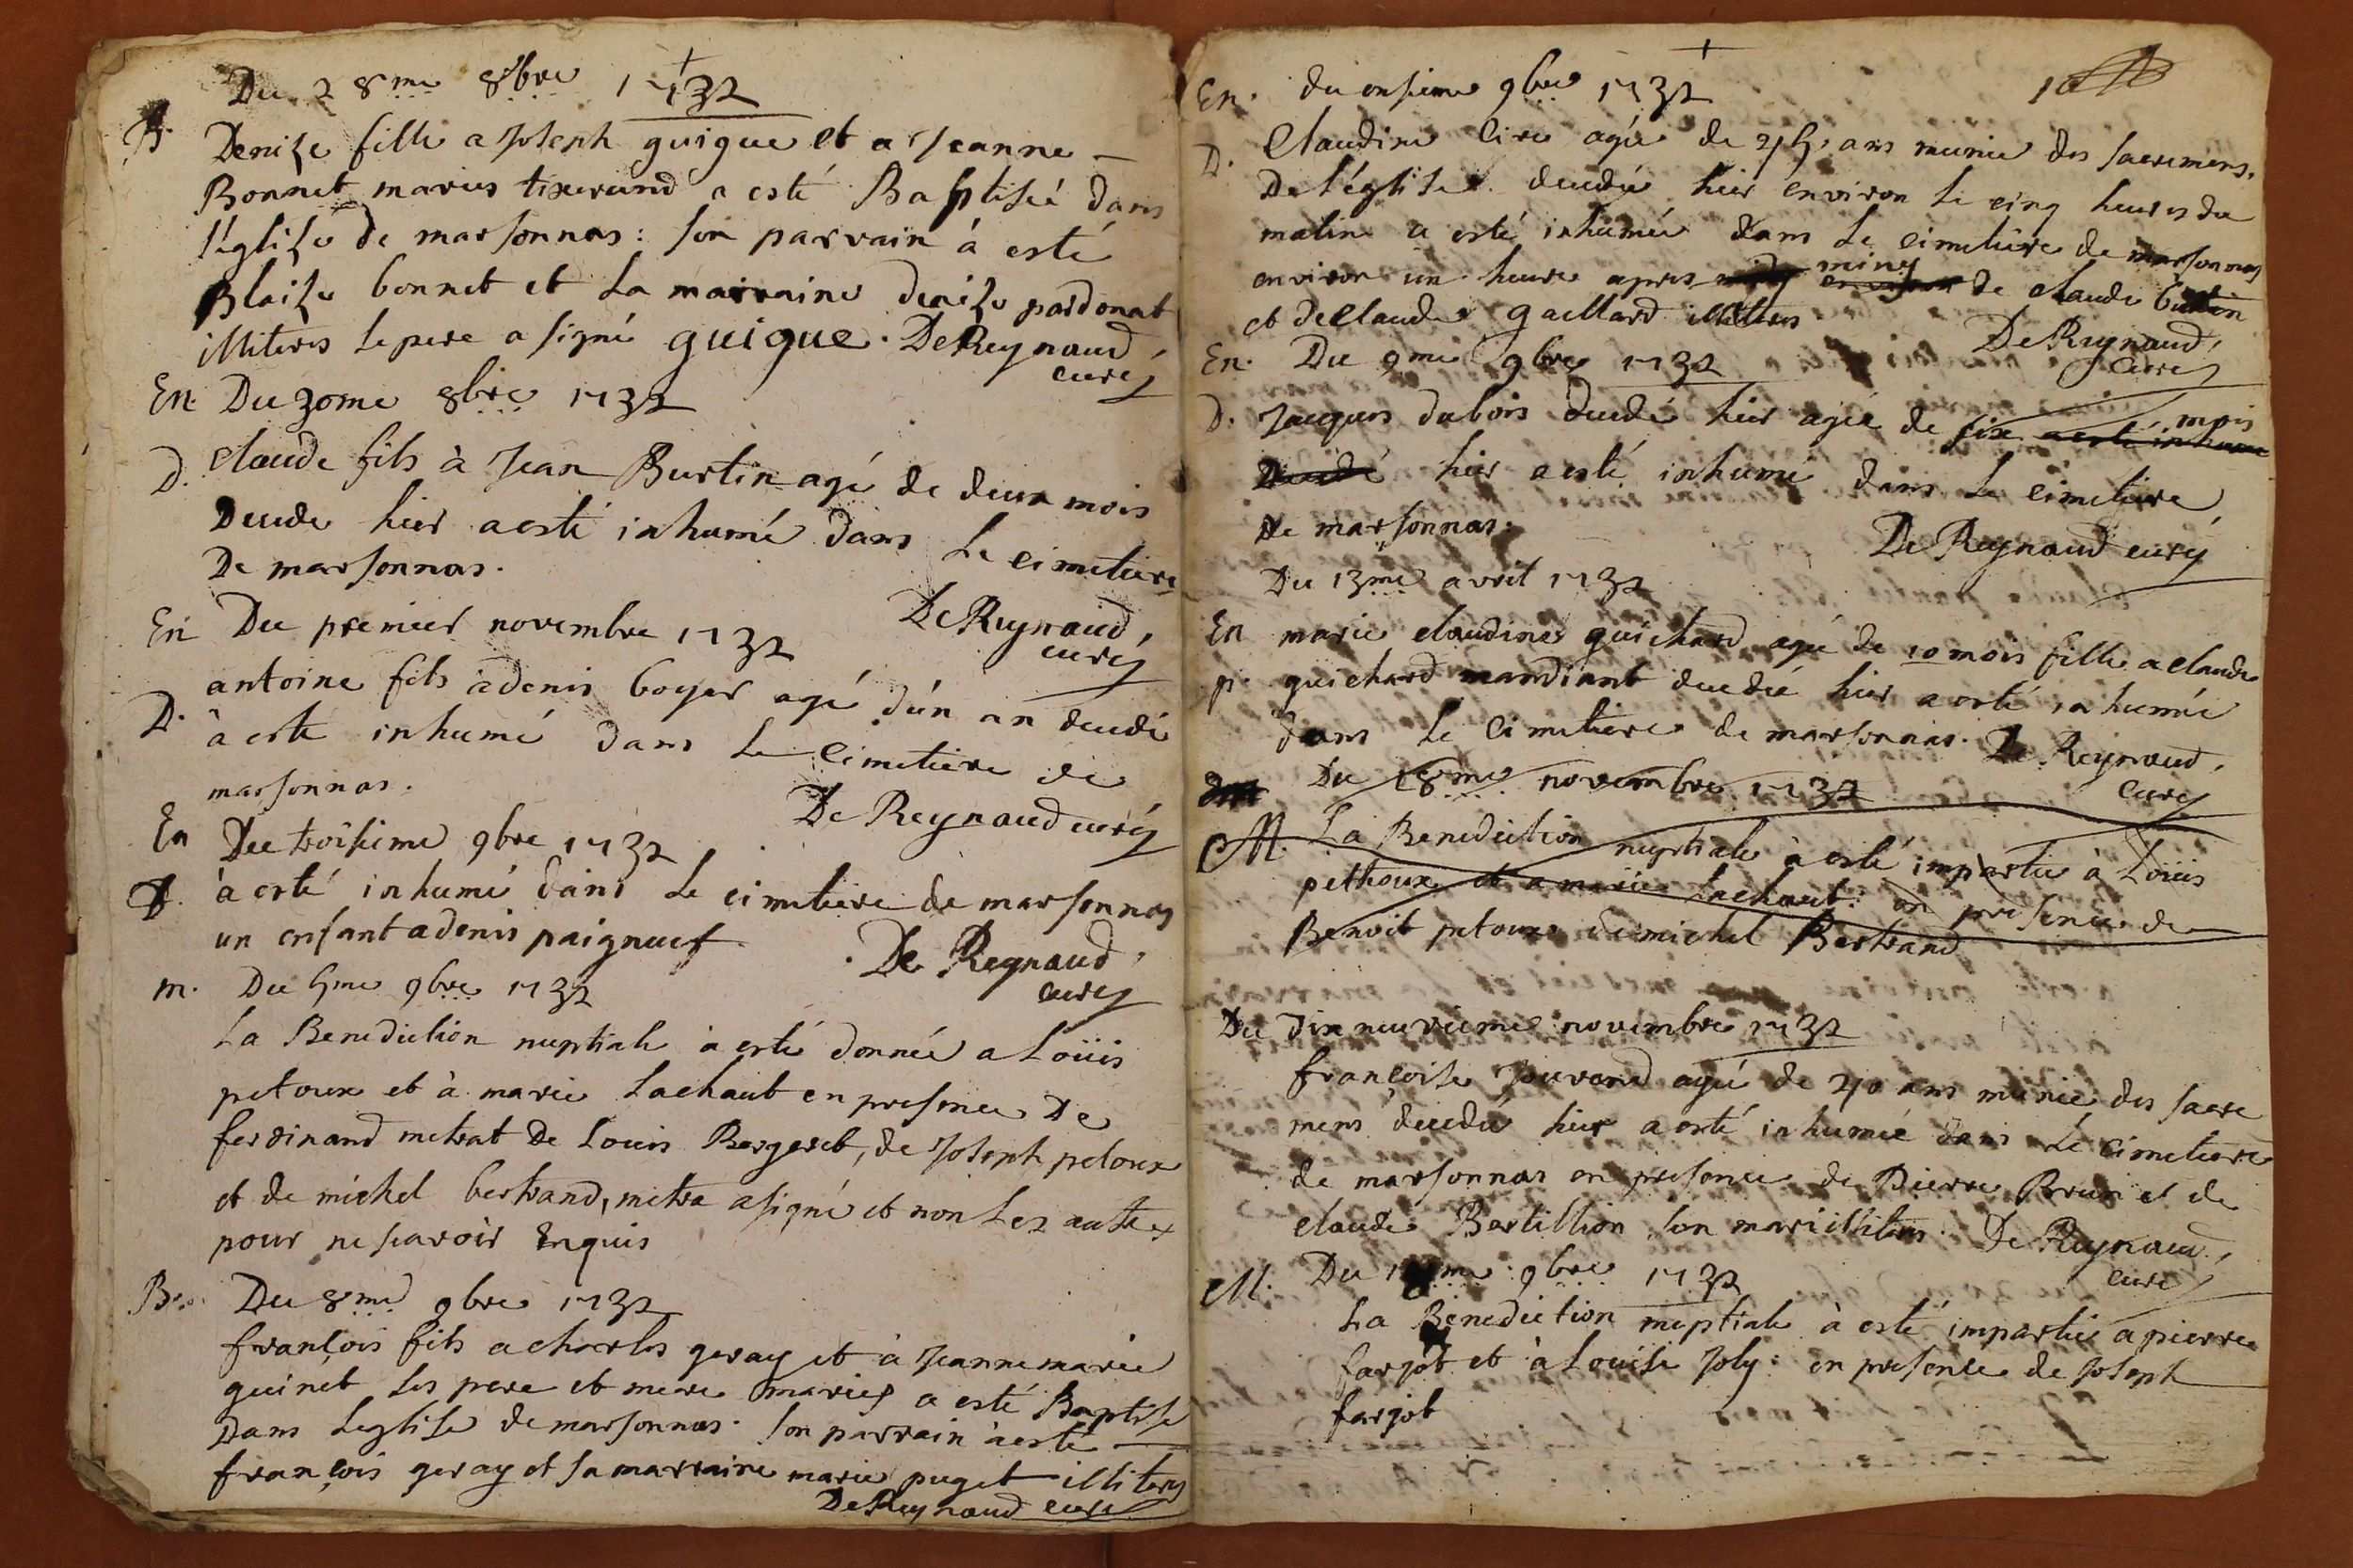 Du 28me 8bre 1732
B. Denize fille a Joseph guigue et a Jeanne
Bonnet mariés tixerand a esté Baptisée dans
l'église de marsonnas: son parrain à esté
Blaize bonnet et la marraine denize pardonat
illiterés le pere a signé guigue. De Reynaud,
curé
En Du 30me 8bre 1732
D. Claude fils à Jean Burtin agé de deux mois
Decede hier a esté inhumé dans le cimetiere
De marsonnas.
De Reynaud,
curé
En Du premier novembre 1732
D. antoine fils à denis boyer agé d'un an decedé
à esté inhumé dans le Cimetiere de
marsonnas.
De Reynaud curé
En Du troisieme 9bre 1732
D. à esté inhumé dans le cimetiere de marsonnas
un enfant a denis paigneuf
De Reynaud,
curé
m. Du 5me 9bre 1732
La Benediction nuptiale à esté donnée a Loüis
petoux et à marie Lachaut en presence De
ferdinand metrat De Louis Bergeret, de Joseph petoux
et de michel bertrand, metra a signé et non les autres
pour ne scavoir Enquis
B. Du 8me 9bre 1732
françois fils a charles geray et à Jeanne marie
guinet ses pere et mere mariés a esté Baptisé
Dans leglise de marsonnas. son parrain à esté
françois geray et sa marraine marie puget illiterés
De Reynaud curé
En. du onsieme 9bre 1732
10
D. Claudine Cire agée de 45 ans munie des sacremens
De l'église decedée hier environ le cinq heures du
matin a esté inhumée dans le cimetiere de marsonnas
environ un heure apres midy miny de claude burtin
et de claude gaillard illiterés
De Reynaud,
curé
En. Du 9me 9bre 1732
D. Jacques dubois decedé hier agée de six a esté inhumé mois
Decedé hier a esté inhumé dans le cimetiere
De marsonnas.
De Reynaud curé
Du 13me avril 1732
En marie claudine guichard agée de 10 mois fille a claude
p. guichard mandiant decedée hier a esté inhumée
dans le cimetiere de marsonnas. De Reynaud,
curé
Du 18me novembre 1732
M. La Benediction nuptiale à esté impartie à Loüis
pethoux et a marie Lachaut: en presence de
Benoit petoux de michel Bertrand
Du dix neuvieme novembre 1732
françoise Jouvend agée de 40 ans munie des sacre
mens decedée hier a esté inhumée dans le cimetiere
de marsonnas en presence de Pierre Brun et de
claude Bertillion son mari illiterés. De Reynaud,
curé
M. Du me 9bre 1732
La Benediction nuptiale à esté impartie a pierre
farjot et à Louise Joly: en presence de Joseph
farjot